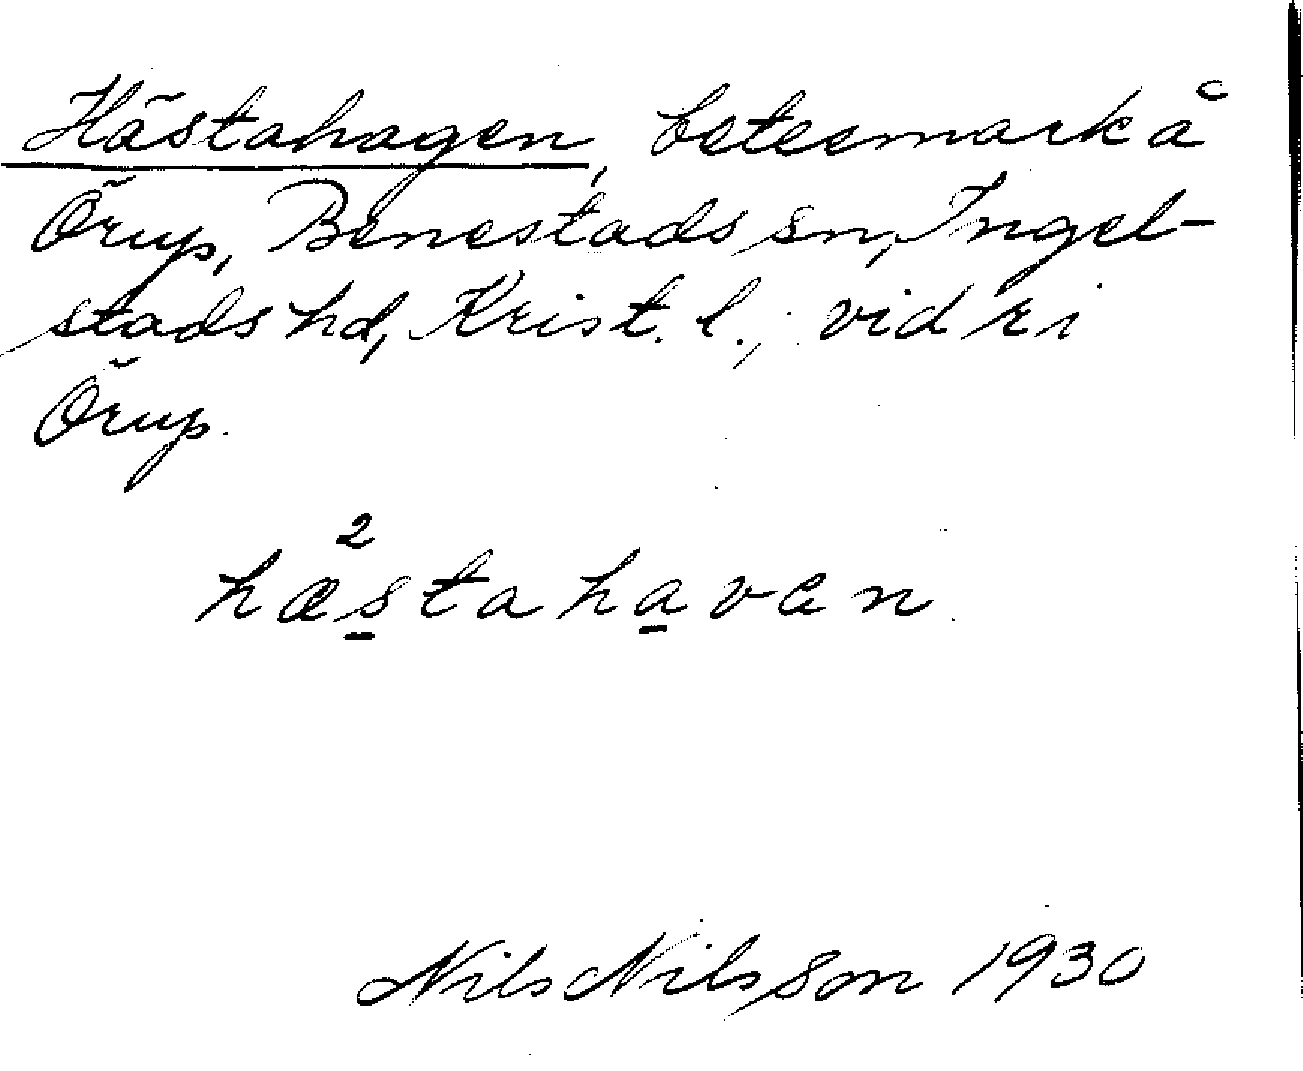 Hästahagen, betesmark å
Örup, Benestads sn, Ingel-
stads hd, Krist. l.; vid ri
Örup.
2
hæstahaven
Nils Nilsson 1930